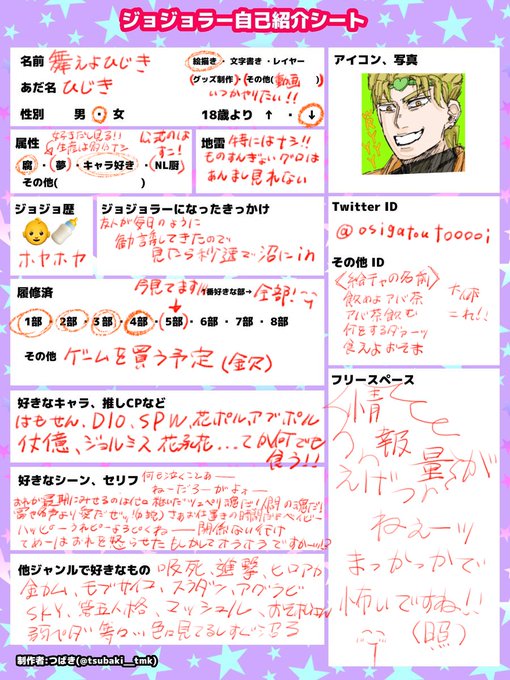 ジョジョラー自己紹介シート
名前 舞えよひじき
あだ名 ひじき
性別 男・女
絵描き・文字書き・レイヤー
グッズ制作・その他(動画)
いつかやりたい!!
18歳より ↑・↓
アイコン、写真
属性
公式のは
腐・夢・キャラ好き・NL厨
その他( )
地雷 特にはナシ!!
ものすんぎないグロは
あんまし見れない
ジョジョ歴
👶🍼
ホヤホヤ
ジョジョラーになったきっかけ
友人が毎日のように
勧誘してきたので
見たら秒速で沼にin
Twitter ID
@osigatoutooooi
その他 ID
飲めよアバ茶
アバ茶飲む
何をするだァーッ
食えよおそま
これ!!
履修済
今見てます!!
1番好きな部→全部!
1部・2部・3部・4部・5部・6部・7部・8部
その他 ゲームを買う予定(金欠)
好きなキャラ、推しCPなど
はもせん、DIO、SPW、花ポル、アブポル
仗億、ジョルミス、花承花...てか何でも
食う!!
好きなシーン、セリフ
何も泣くことぁー
ねーだろーがよォー
ハッピーうれピーよろしくねー
てめーはおれを怒らせた
他ジャンルで好きなもの 吸死、進撃、ヒロアカ
金カム、モブサイコ、スラダン、アクラビ
SKY、第五人格、マッシュル、おそ松さん
弱ペダ 等々...色々見てるしすぐ沼る
フリースペース
情報量が
えげつ
ねぇーッ
まっかっかで
怖いですね!!
(照)
制作者:つばき(@tsubaki__tmk)